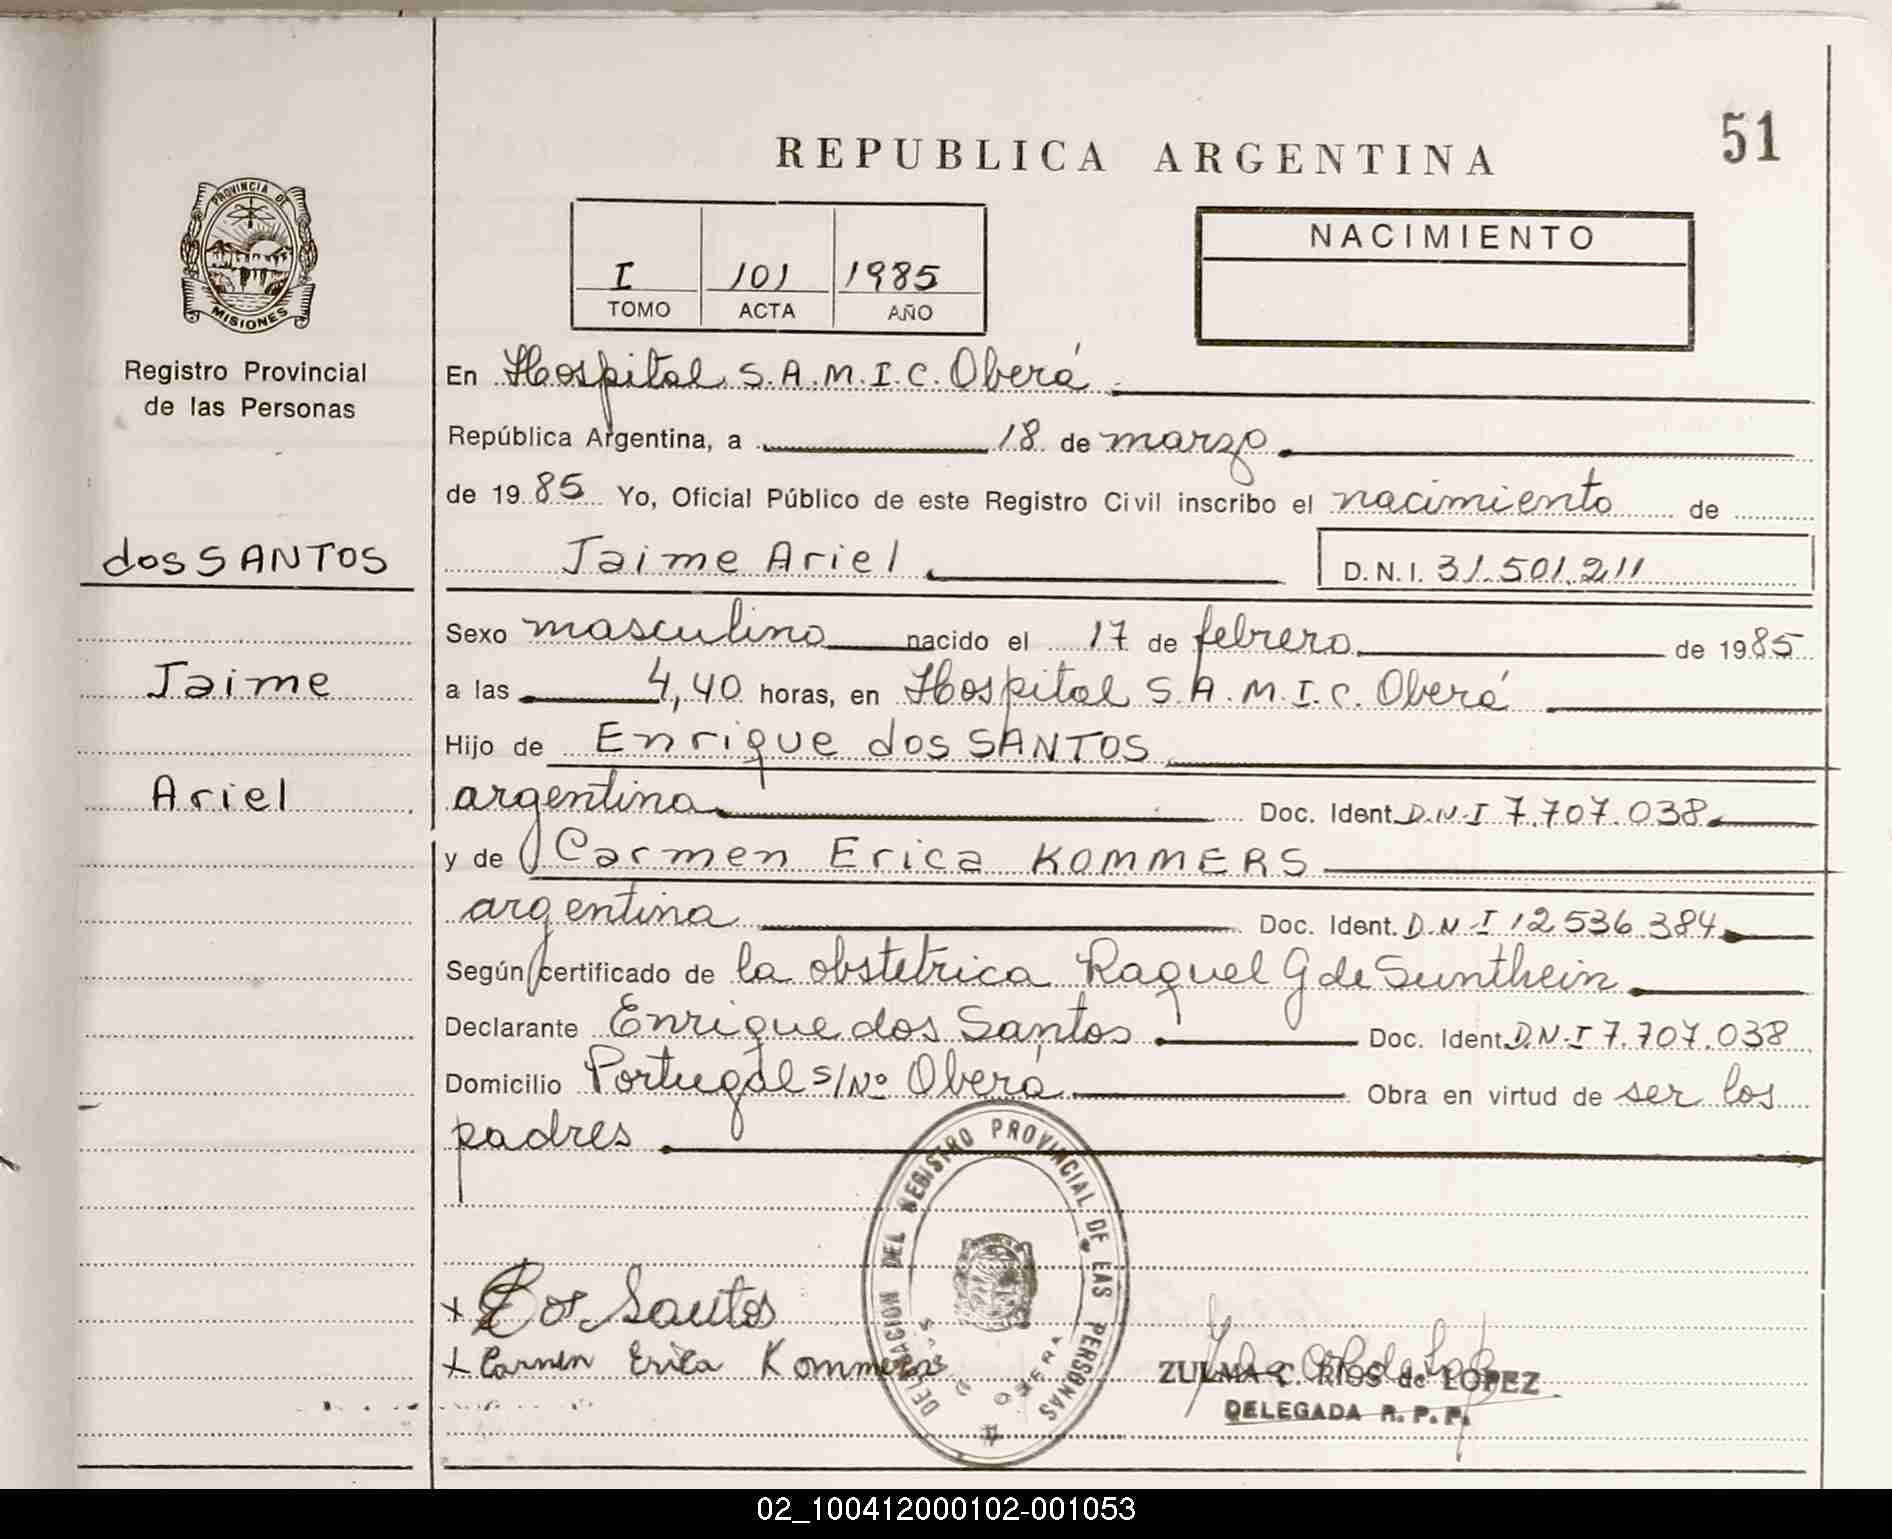 51
REPUBLICA ARGENTINA
PROVINCIA DE
MISIONES
Registro Provincial
de las Personas
I 101 1985
TOMO ACTA AÑO
NACIMIENTO
En Hospital S.A.M.I.C. Oberá
República Argentina, a 18 de marzo
de 1985 Yo, Oficial Público de este Registro Civil inscribo el nacimiento de
dos SANTOS
Jaime Ariel D.N.I. 31.501.211
Sexo masculino nacido el 17 de febrero de 1985
Jaime
a las 4,40 horas, en Hospital S.A.M.I.C. Oberá
Hijo de Enrique dos SANTOS
Ariel
argentina Doc. Ident. D.N.I 7.707.038
y de Carmen Erica KOMMERS
argentina Doc. Ident. D.N.I 12.536.384
Según certificado de la obstetrica Raquel G de Sunthein
Declarante Enrique dos Santos Doc. Ident. D.N.I 7.707.038
Domicilio Portugal s/Nº Oberá Obra en virtud de ser los
padres
DELEGACION DEL REGISTRO PROVINCIAL DE LAS PERSONAS
OBERA
+ Dos Santos
+ Carmen Erica Kommers
ZULMA C. RIOS de LOPEZ
DELEGADA R.P.P.
02_100412000102-001053